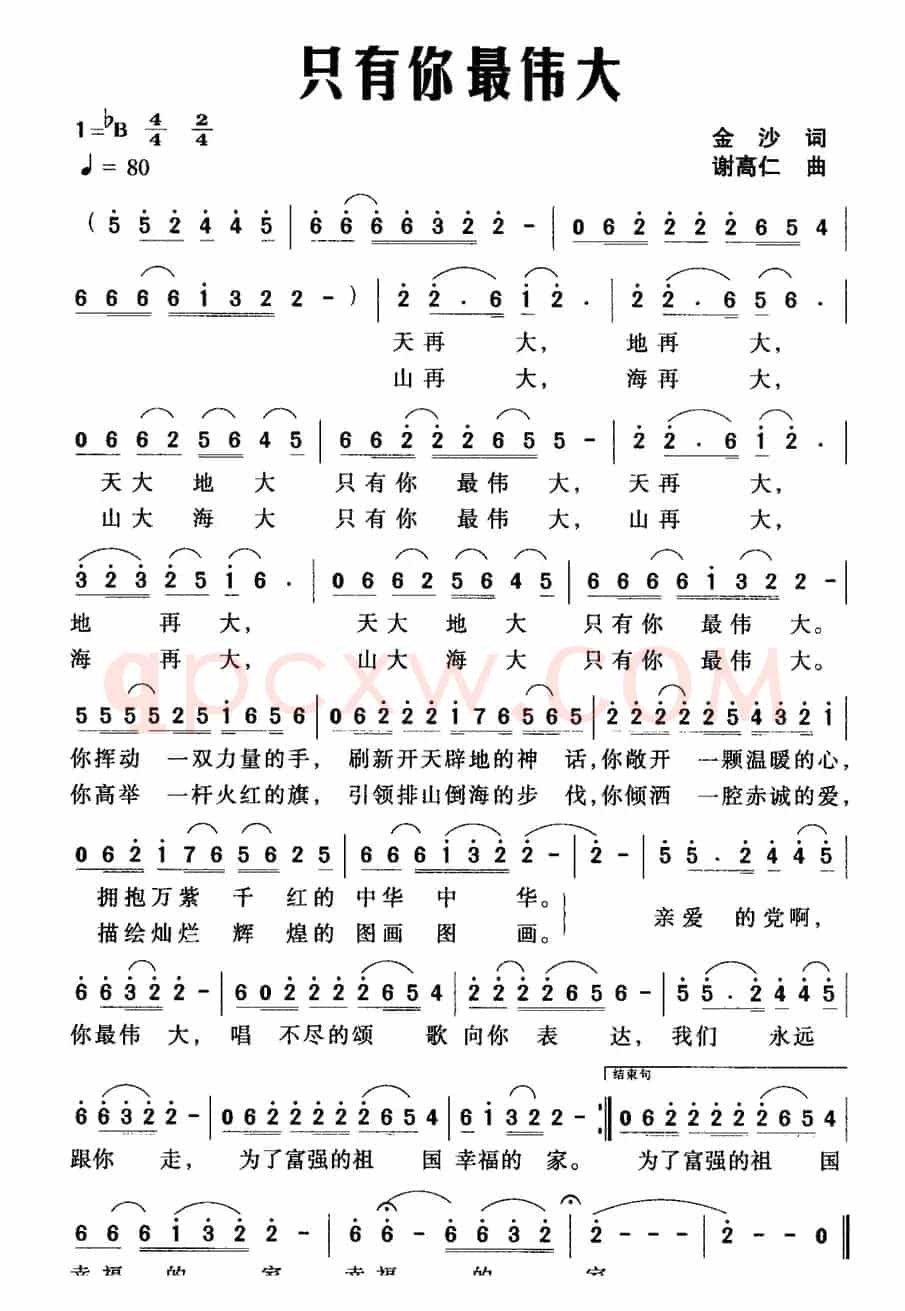 只有你最伟大
1=♭B 4/4 2/4
金 沙 词
♩= 80
谢高仁 曲
( 5 5 2 4 4 5 | 6 6 6 6 3 2 2 - | 0 6 2 2 2 2 6 5 4 |
6 6 6 6 1 3 2 2 2 - ) | 2 2 . 6 1 2 . | 2 2 . 6 5 6 . |
天再 大, 地再 大,
山再 大, 海再 大,
0 6 6 2 5 6 4 5 | 6 6 2 2 2 6 5 5 - | 2 2 . 6 1 2 . |
天大 地 大 只有你 最伟 大, 天再 大,
山大 海 大 只有你 最伟 大, 山再 大,
3 2 3 2 5 1 6 . | 0 6 6 2 5 6 4 5 | 6 6 6 6 1 3 2 2 - |
地 再 大, 天大 地 大 只有你 最伟 大。
海 再 大, 山大 海 大 只有你 最伟 大。
qpcxw.COM
5 5 5 5 2 5 1 6 5 6 | 0 6 2 2 2 1 7 6 5 6 5 | 2 2 2 2 2 5 4 3 2 1 |
你挥动 一双力量的手, 刷新开天辟地的神 话,你敞开 一颗温暖的心,
你高举 一杆火红的旗, 引领排山倒海的步 伐,你倾洒 一腔赤诚的爱,
0 6 2 1 7 6 5 6 2 5 | 6 6 6 1 3 2 2 - | 2 - | 5 5 . 2 4 4 5 |
拥抱万紫 千 红的 中华 中 华。
亲爱 的党啊,
描绘灿烂 辉 煌的 图画 图 画。
6 6 3 2 2 - | 6 0 2 2 2 2 6 5 4 | 2 2 2 2 6 5 6 - | 5 5 . 2 4 4 5 |
你最伟 大, 唱 不尽的颂 歌 向你 表 达, 我们 永远
结束句
6 6 3 2 2 - | 0 6 2 2 2 2 2 6 5 4 | 6 1 3 2 2 - :‖ 0 6 2 2 2 2 2 6 5 4 |
跟你 走, 为了富强的祖 国 幸福的 家。 为了富强的祖 国
6 6 6 1 3 2 2 - | 6 6 - 6 6 3 2 | 2 - - - | 2 - - 0 ‖